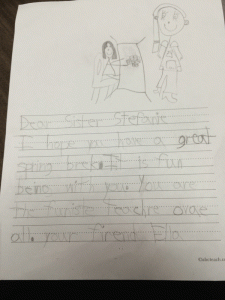 Dear Sister Stefanie
I hope you have a great
spring break It is fun
being with you. You are
the funiste teachre ovre
all. your friend Ella